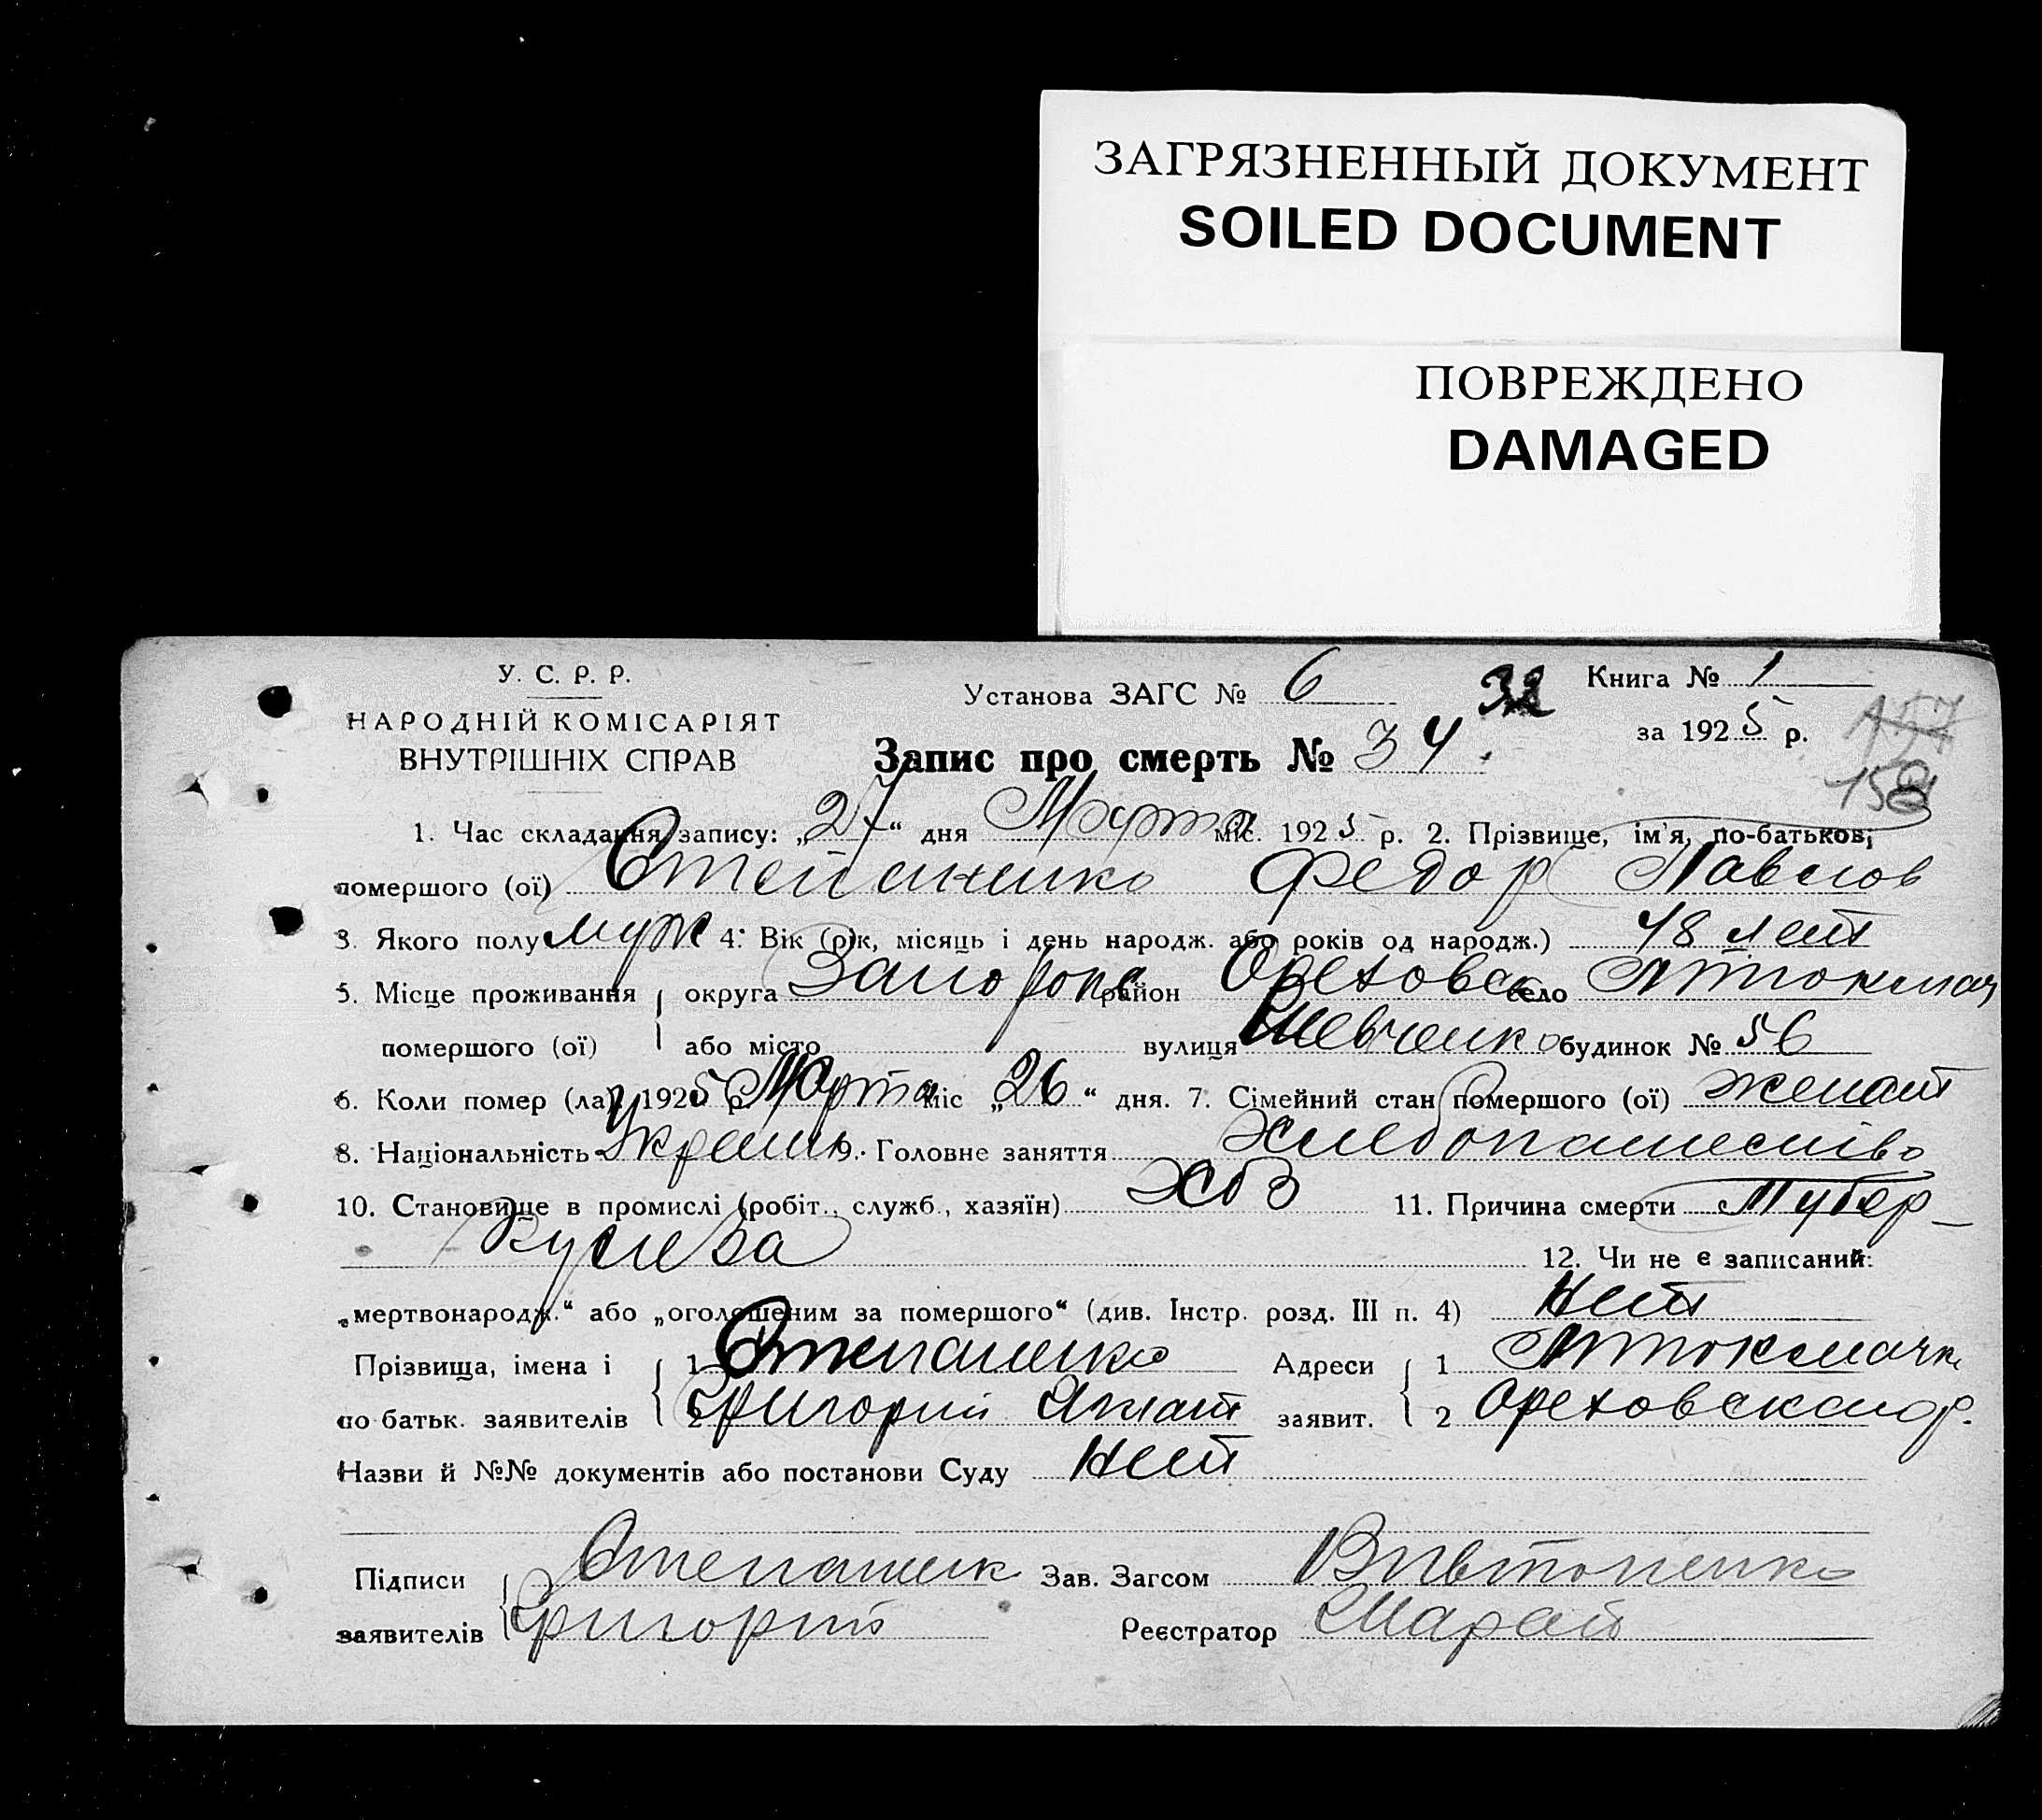 ЗАГРЯЗНЕННЫЙ ДОКУМЕНТ
SOILED DOCUMENT
ПОВРЕЖДЕНО
DAMAGED
У. С. Р. Р.
НАРОДНІЙ КОМІСАРІЯТ
ВНУТРІШНІХ СПРАВ
Установа ЗАГС № 6
Книга № 1
за 1925 р.
32
Запис про смерть № 34
157
158
1. Час складання запису: „27“ дня Марта міс. 1925 р. 2. Прізвище, ім'я, по-батькові
помершого (ої) Степаненко Федор Павлов
3. Якого полу муж 4. Вік (рік, місяць і день народж. або років од народж.) 48 лет
5. Місце проживання округа Запорож район Орехова село
помершого (ої) або місто вулиця Шевченко будинок № 56
6. Коли помер (ла) 1925 р. Марта міс „26“ дня. 7. Сімейний стан помершого (ої) женат
8. Національність Украин 9. Головне заняття
10. Становище в промислі (робіт., служб., хазяїн) 11. Причина смерти Тубер-
кулеза 12. Чи не є записаний:
„мертвонародж.“ або „оголошеним за помершого“ (див. Інстр. розд. III п. 4) Нет
Прізвища, імена і 1 Степаненко Адреси 1
по батьк. заявителів 2 Григорий заявит. 2 Ореховска
Назви й №№ документів або постанови Суду Нет
Підписи Степаненк Зав. Загсом
заявителів Григорий Реєстратор